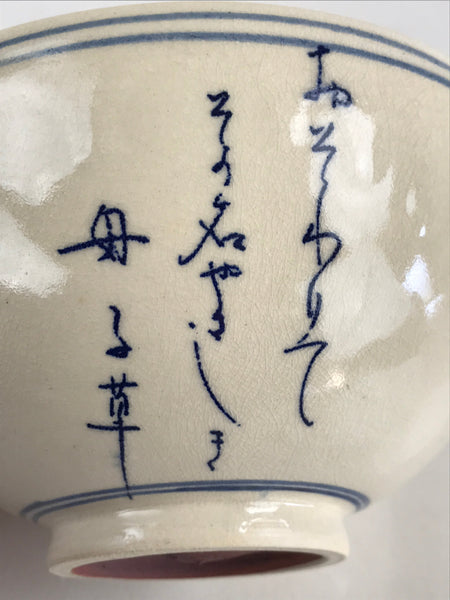 おそわりて
その名やさしき
母子草